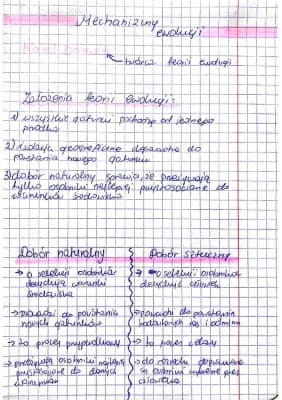 Mechanizmy
ewolucji
Karol Darwin
twórca teorii ewolucji
Założenia teorii ewolucji:
1) wszystkie gatunki pochodzą od jednego
przodka
2) izolacja geograficzna doprowadza do
powstania nowego gatunku
3) dobór naturalny sprawia, że przeżywają
tylko osobniki najlepiej przystosowane do
warunków środowiska
Dobór naturalny
→ o selekcji osobników
decydują warunki
środowiska
→ prowadzi do powstania
nowych gatunków
→ to proces przypadkowy
→ przeżywają osobniki najlepiej
przystosowane do danych
warunków
Dobór sztuczny
→ o selekcji osobników
decyduje człowiek
→ prowadzi do powstania
hodowlanych ras i odmian
→ to proces celowy
→ do rozrodu dopuszczane
są osobniki wybrane przez
człowieka